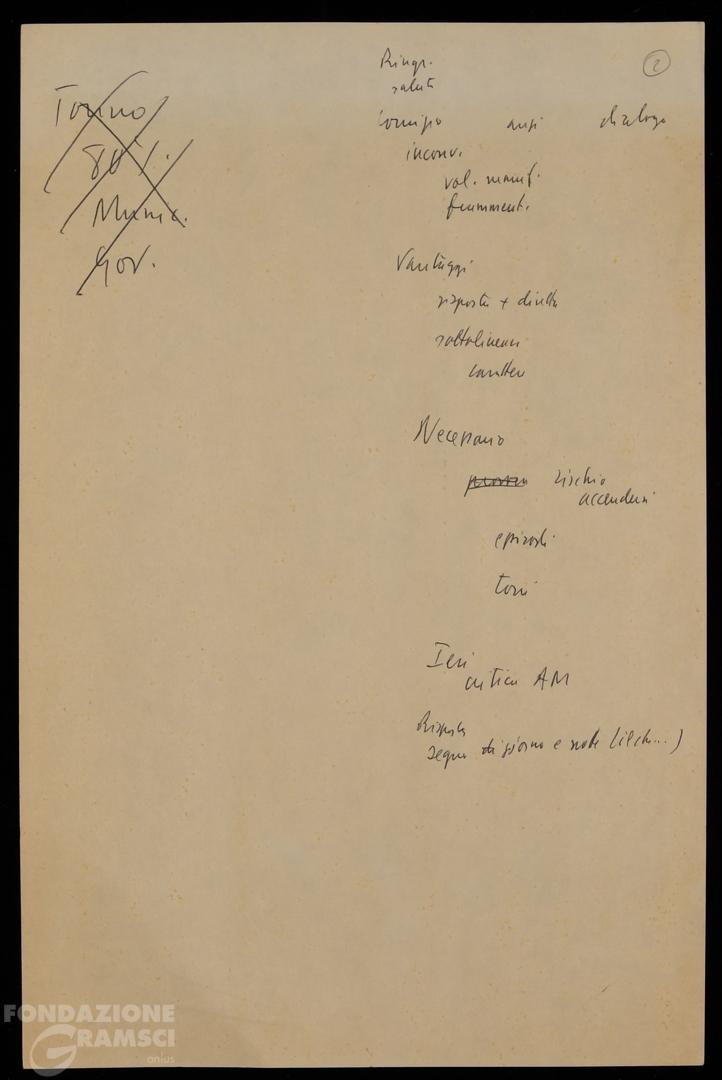 2
Ringr.
saluti
Comizio anzi dialogo
inconv.
vol. manif.
framment.
Vantaggi
risposta + diretta
sottolineare
carattere
Necessario
rischio
accendersi
episodi
toni
Ieri
critica AM
Risposta
segue di giorno e notte (il che...)
Torino
80%.
Munic.
Gov.
FONDAZIONE
GRAMSCI
onlus